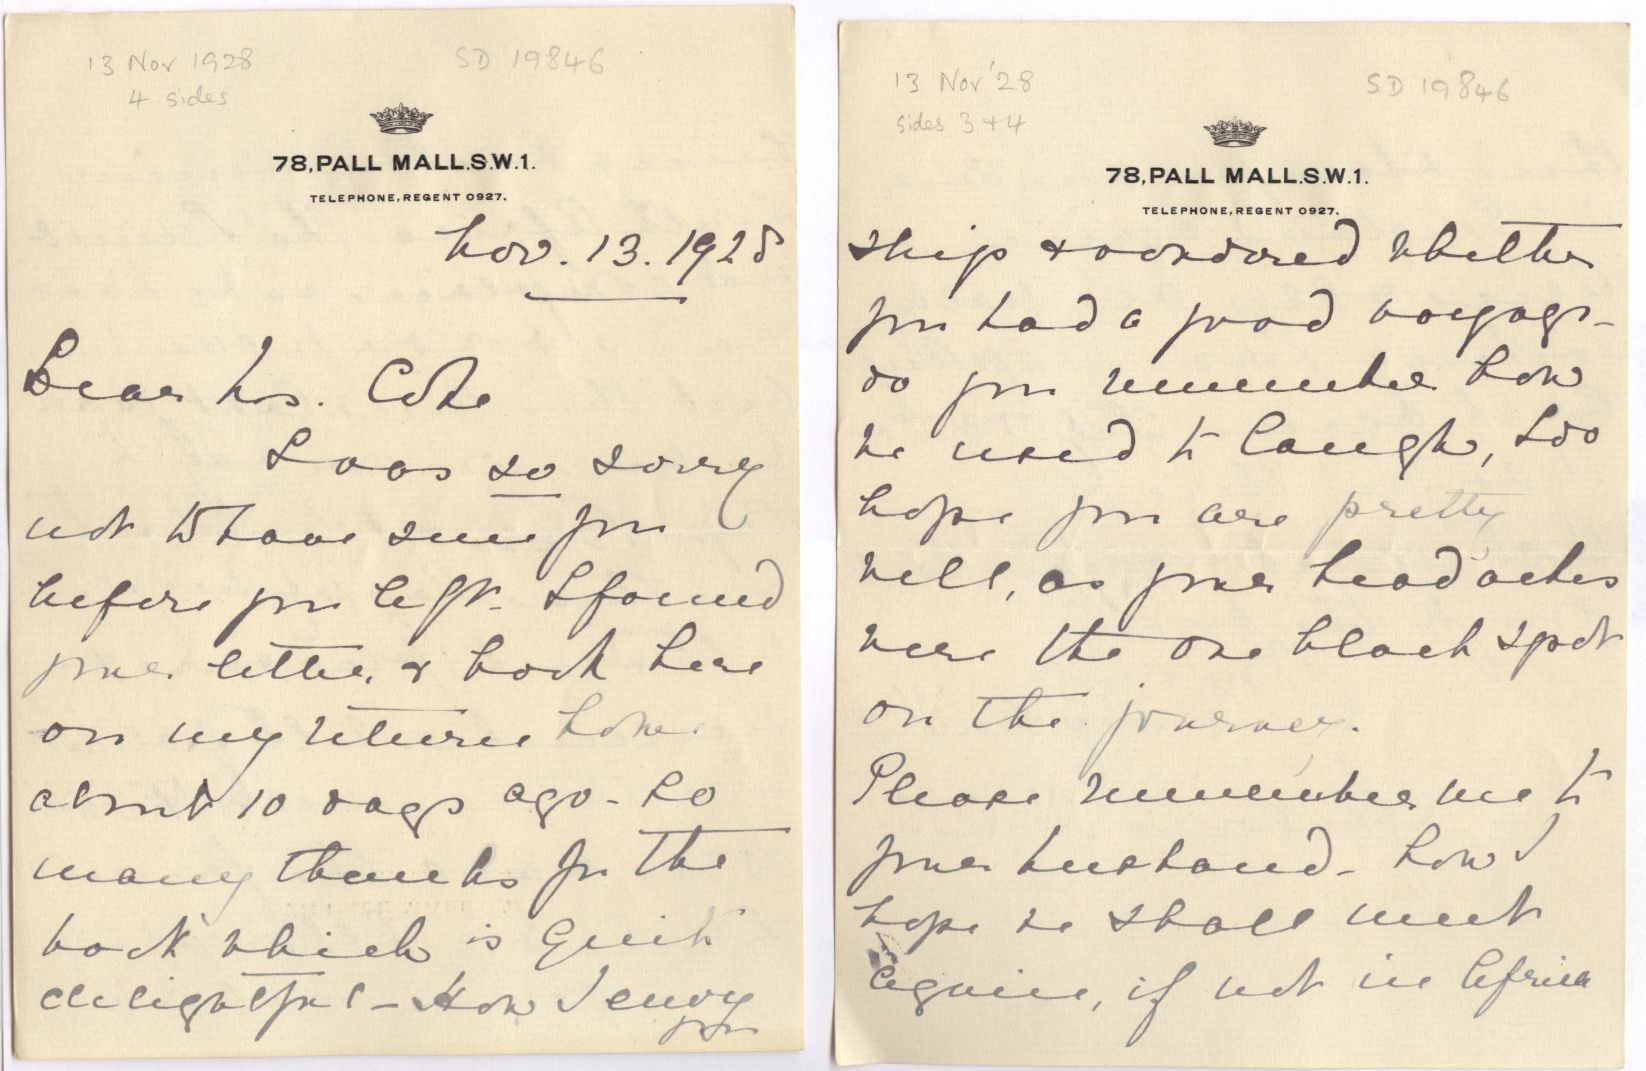 13 Nov 1928
4 sides
SD 19846
78, PALL MALL. S.W.1.
TELEPHONE, REGENT 0927.
Nov. 13. 1928
Dear Mrs. Cole
I was so sorry
not to have seen you
before you left. I found
your letter & book here
on my return home
about 10 days ago - So
many thanks for the
book which is quite
delightful - How I envy
you
13 Nov '28
sides 3 + 4
SD 19846
78, PALL MALL. S.W.1.
TELEPHONE, REGENT 0927.
ship & wondered whether
you had a good voyage -
do you remember how
we used to laugh, I do
hope you are pretty
well, as your headaches
were the one black spot
on the journey.
Please remember me to
your husband - how I
hope we shall meet
again, if not in Africa